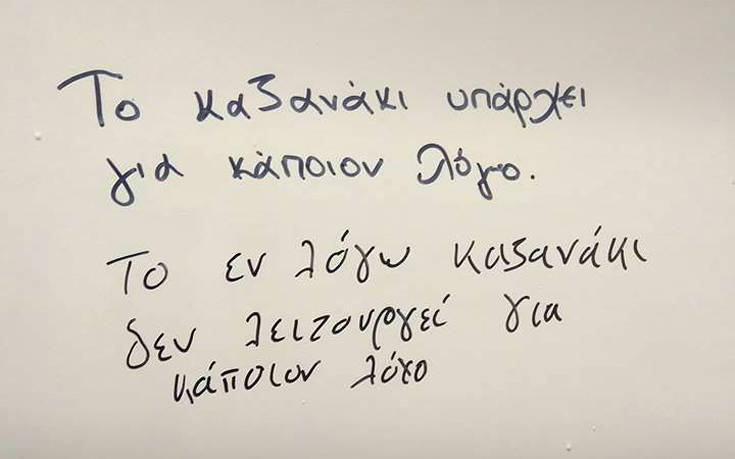 Το καζανάκι υπάρχει
για κάποιον λόγο.
Το εν λόγω καζανάκι
δεν λειτουργεί για
κάποιον λόγο